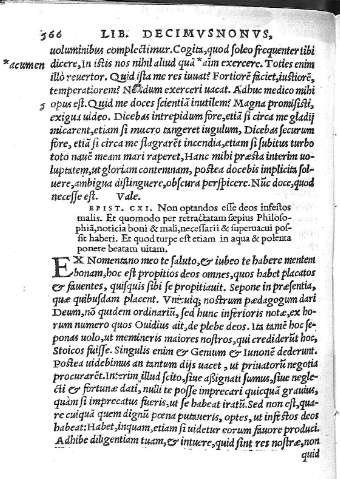 366 LIB. DECIMVSNONVS,
uoluminibus complectimur. Cogita, quod soleo frequenter tibi
*acumen dicere, In istis nos nihil aliud quā *aim exercere. Toties enim
illò reuertor. Quid ista me res iuuat? Fortiorē faciet, iustiorē,
temperatiorem? Nōdum exerceri uacat. Adhuc medico mihi
5 opus est. Quid me doces scientiā inutilem? Magna promisisti,
exigua uideo. Dicebas intrepidum fore, etiā si circa me gladij
micarent, etiam si mucro tangeret iugulum, Dicebas securum
fore, etiā si circa me flagrarēt incendia, etiam si subitus turbo
toto nauē meam mari raperet, Hanc mihi præsta interim uo-
luptatem, ut gloriam contemnam, postea docebis implicita sol-
uere, ambigua distinguere, obscura perspicere. Nūc doce, quod
necesse est. Vale.
EPIST. CXI. Non optandos esse deos infestos
malis. Et quomodo per retractatam sepius Philoso-
phiā, noticia boni & mali, necessarii & superuacui pos-
sit haberi. Et quod turpe est etiam in aqua & polenta
ponere beatam uitam.
EX Nomentano meo te saluto, & iubeo te habere mentem
bonam, hoc est propitios deos omnes, quos habet placatos
& fauentes, quisquis sibi se propitiauit. Sepone in præsentia,
quæ quibusdam placent. Vnicuiq; nostrum pædagogum dari
Deum, nō quidem ordinariū, sed hunc inferioris notæ, ex ho-
rum numero quos Ouidius ait, de plebe deos. Ita tamē hoc se-
ponas uolo, ut memineris maiores nostros, qui crediderūt hoc,
Stoicos fuisse. Singulis enim & Genium & Iunonē dederunt.
Postea uidebimus an tantum dijs uacet, ut priuatorū negotia
procurarēt. Interim illud scito, siue assignati sumus, siue neglec-
ti & fortunæ dati, nulli te posse imprecari quicquā grauius,
quàm si imprecatus fueris, ut se habeat iratū. Sed non est, qua-
re cuiquā quem dignū pœna putaueris, optes, ut infestos deos
habeat: Habet, inquam, etiam si uidetur eorum fauore produci.
Adhibe diligentiam tuam, & intuere, quid sint res nostræ, non
quid